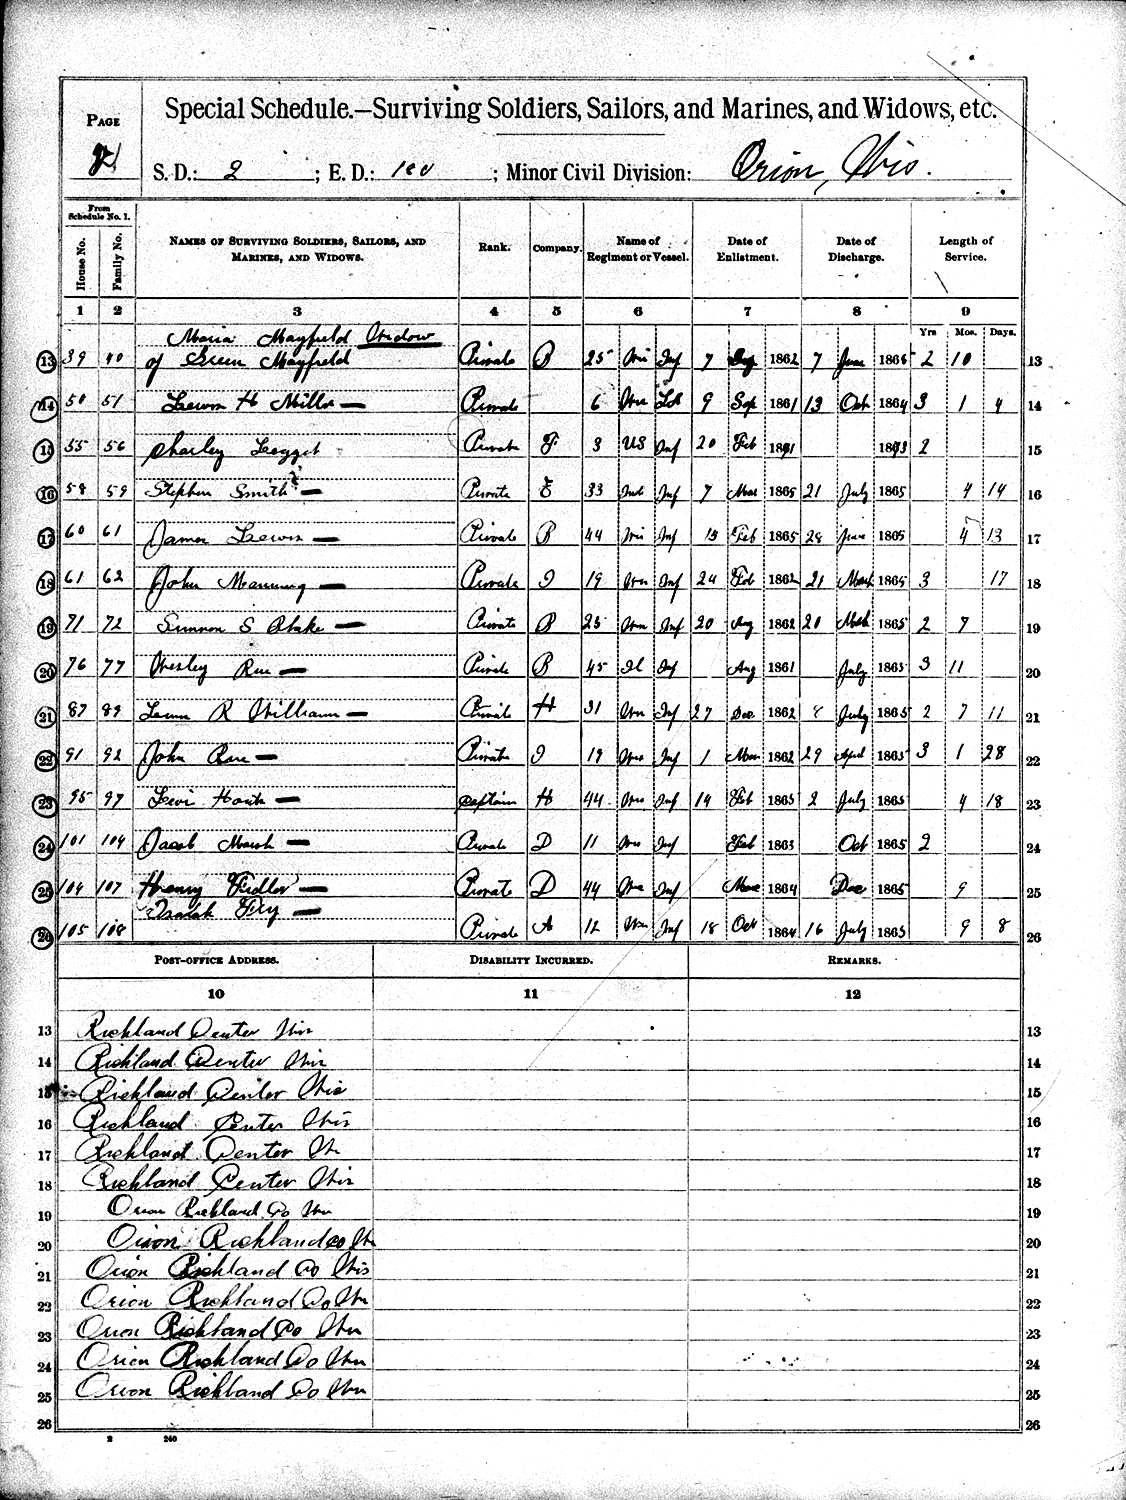 Special Schedule.—Surviving Soldiers, Sailors, and Marines, and Widows, etc.
PAGE
S. D.: 2 ; E. D.: ; Minor Civil Division: Orion, Wis.
From Schedule No. 1.
House No. Family No. NAMES OF SURVIVING SOLDIERS, SAILORS, AND MARINES, AND WIDOWS. Rank. Company. Name of Regiment or Vessel. Date of Enlistment. Date of Discharge. Length of Service.
1 2 3 4 5 6 7 8 9
Yrs Mos. Days.
Maria Mayfield Widow
13 39 40 of Green Mayfield Private B 25 Wis Inf 7 1862 7 June 1865 2 10 13
14 50 51 Lewis H Miller Private 6 Wis 9 Sep 1861 13 Oct 1864 3 1 4 14
15 55 56 Charley Legget Private F 3 US Inf 20 Feb 2 15
16 58 59 Stephen Smith Private E 33 Ind Inf 7 Mar 1865 21 July 1865 4 14 16
17 60 61 James Lewis Private B 44 Wis Inf 13 Feb 1865 28 June 1865 4 13 17
18 61 62 John Manning Private I 19 Wis Inf 24 Feb 1862 21 March 1865 3 17 18
19 71 72 Simmon S Blake Private B 25 Wis Inf 20 Aug 1862 20 1865 2 7 19
20 76 77 Wesley Rue Private B 45 Il Inf Aug 1861 July 1865 3 11 20
21 87 89 R William Private H 31 Wis Inf 27 Dec 1862 8 July 1865 2 7 11 21
22 91 92 John Rue Private I 19 Wis Inf 1 Mar 1862 29 Apl 1865 3 1 28 22
23 95 97 Levi Houk Captain H 44 Wis Inf 14 Feb 1865 2 July 1865 4 18 23
24 101 104 Jacob Marsh Private D 11 Wis Inf Feb 1863 Oct 1865 2 24
25 104 107 Henry Fidler Private D 44 Wis Inf 1864 Dec 1865 9 25
26 105 108 Isaiah Fry Private A 12 Wis Inf 18 Oct 1864 16 July 1865 9 8 26
POST-OFFICE ADDRESS. DISABILITY INCURRED. REMARKS.
10 11 12
13 Richland Center Wis 13
14 Richland Center Wis 14
15 Richland Center Wis 15
16 Richland Center Wis 16
17 Richland Center W 17
18 Richland Center Wis 18
19 Orion Richland Co Wis 19
20 Orion Richland co Wis 20
21 Orion Richland Co Wis 21
22 Orion Richland Co Wis 22
23 Orion Richland Co Wis 23
24 Orion Richland Co Wis 24
25 Orion Richland Co Wis 25
26 26
2 240